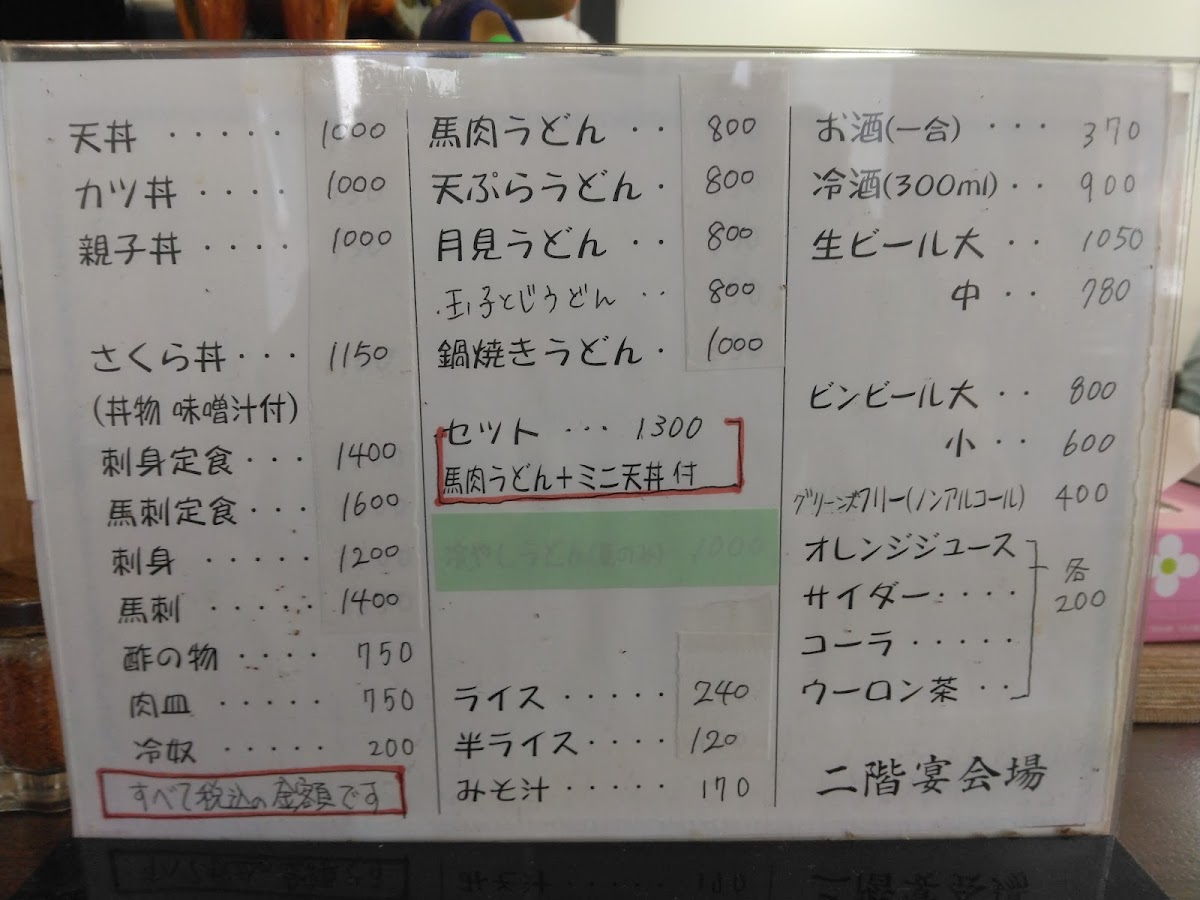 天丼 ····· 1000
カツ丼 ···· 1000
親子丼 ···· 1000
さくら丼 ··· 1150
(丼物 味噌汁付)
刺身定食 ··· 1400
馬刺定食 ··· 1600
刺身 ····· 1200
馬刺 ····· 1400
酢の物 ···· 750
肉皿 ····· 750
冷奴 ····· 200
すべて税込の金額です
馬肉うどん ·· 800
天ぷらうどん · 800
月見うどん ·· 800
玉子とじうどん ·· 800
鍋焼きうどん · 1000
セット ··· 1300
馬肉うどん+ミニ天丼付
ライス ····· 240
半ライス ···· 120
みそ汁 ····· 170
お酒(一合) ··· 370
冷酒(300ml) ·· 900
生ビール大 ·· 1050
中 ·· 780
ビンビール大 ·· 800
小 ·· 600
グリーンズフリー(ノンアルコール) 400
オレンジジュース
サイダー ····
コーラ ·····
ウーロン茶 ··
各
200
二階宴会場